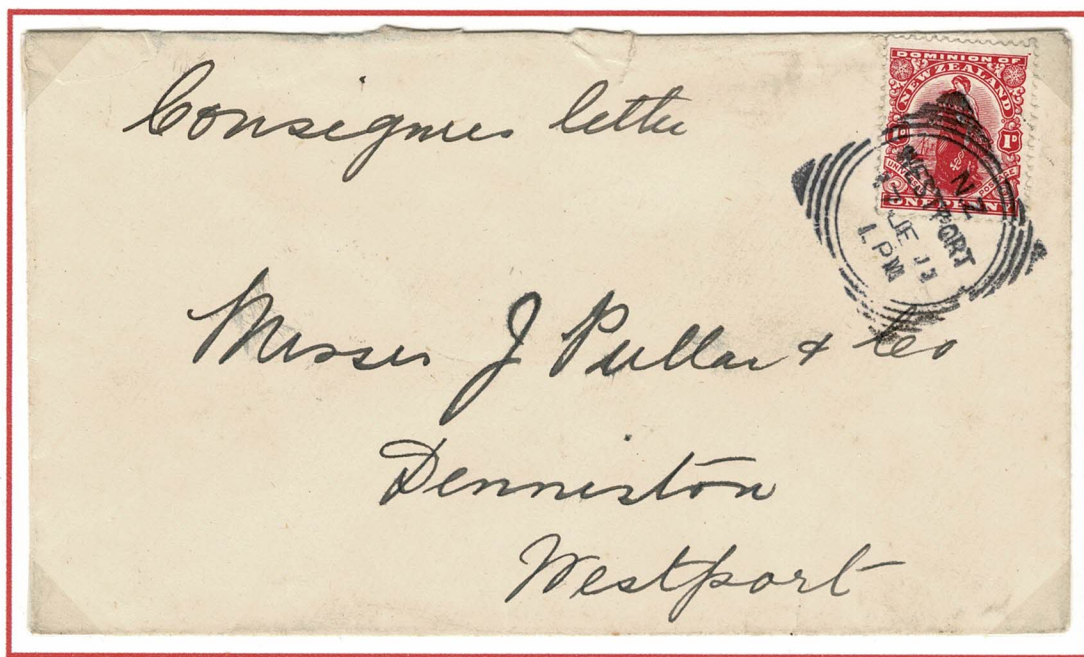 Consignees letter
DOMINION OF
NEW ZEALAND
1D
UNIVERSAL POSTAGE
ONE PENNY
NZ
WESTPORT
JE 11
1 PM
Messrs J Pullar & Co
Denniston
Westport